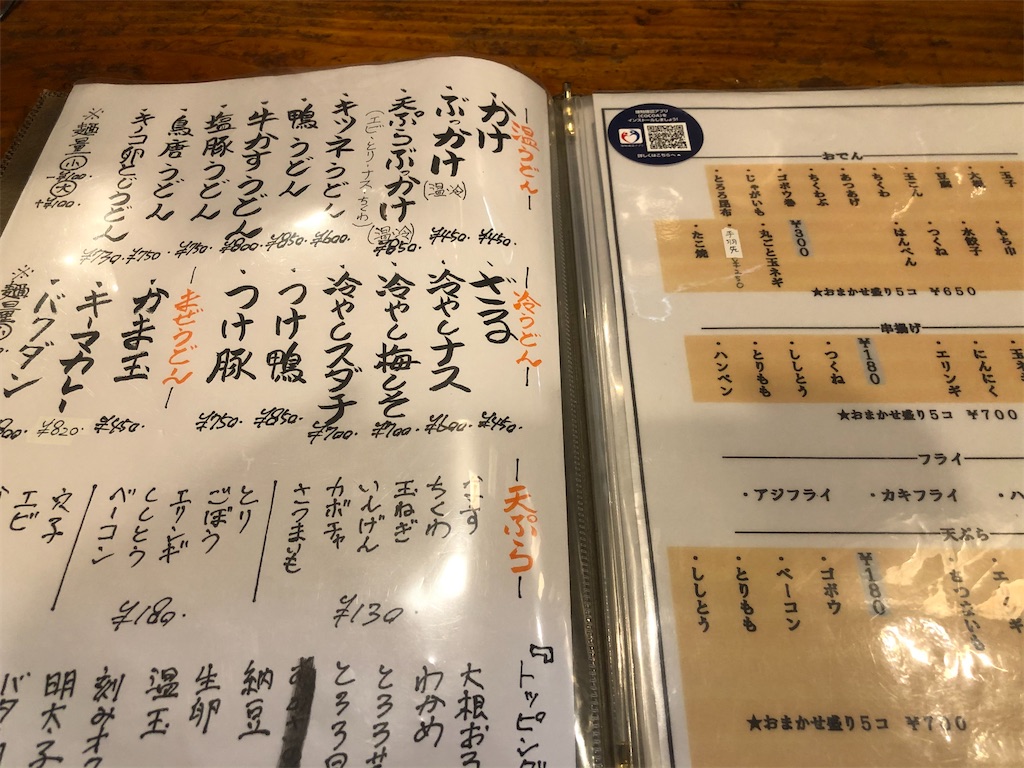 温うどん
・かけ ¥450.
・ぶっかけ (冷温) ¥450.
・天ぷらぶっかけ (冷温) ¥850.
(エビ・とり・ナス・ちくわ)
・キツネうどん ¥600.
・鴨うどん ¥850.
・牛かすうどん ¥800.
・塩豚うどん ¥750.
・鳥唐うどん ¥750.
・キノコ卵とじうどん ¥730.
※麺量 小 -¥100 大 +¥100.
冷うどん
・ざる ¥450.
・冷やしナス ¥600.
・冷やし梅しそ ¥700.
・冷やしスダチ ¥700.
・つけ鴨 ¥850.
・つけ豚 ¥750.
まぜうどん
・かま玉 ¥650.
・キーマカレー ¥820.
・バクダン
※麺量
天ぷら
なす
ちくわ
玉ねぎ
いんげん
カボチャ
さつまいも
¥130.
とり
ごぼう
エリンギ
ししとう
ベーコン
¥180.
穴子
エビ
『トッピング
大根おろ
わかめ
とろろ
とろろ
納豆
生卵
温玉
刻みオク
明太子
バタ
接触確認アプリ
(COCOA)を
インストールしましょう!
詳しくはこちら
おでん
・玉子
・大根
・豆腐
・玉こん
・ちくわ
・あつあげ
・ちくわぶ
・ゴボウ巻
・じゃがいも
・とろろ昆布
・もち巾
・水餃子
・つくね
・はんぺん
¥300
・丸ごと玉ネギ
・たこ焼
★おまかせ盛り5コ ¥650
串揚げ
・玉ネ
・にんにく
・エリンギ
¥180
・つくね
・ししとう
・とりもも
・ハンペン
★おまかせ盛り5コ ¥700
フライ
・アジフライ ・カキフライ ・ハ
天ぷら
¥180
・ゴボウ
・ベーコン
・とりもも
・ししとう
★おまかせ盛り5コ ¥700